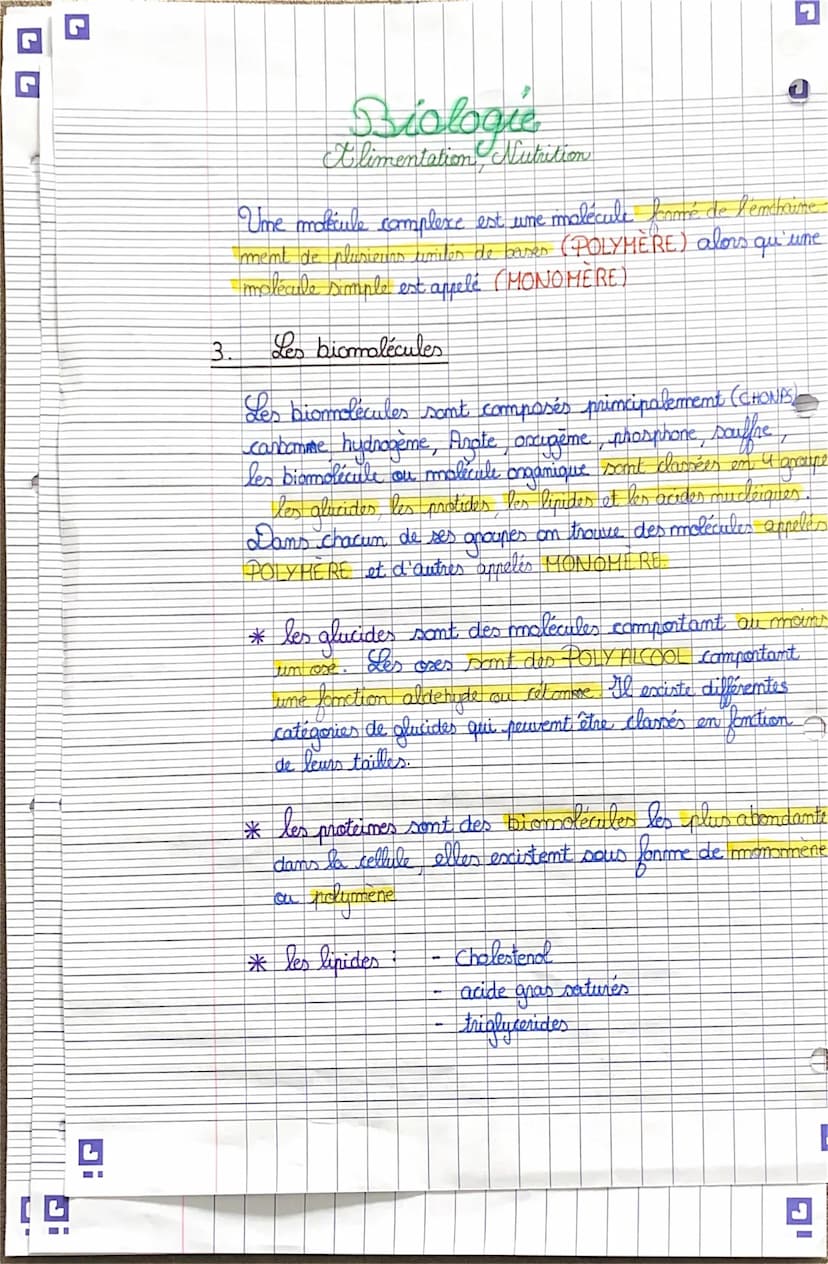 Biologie
Alimentation, Nutrition
Une molécule complexe est une molécule formé de l'enchaine-
ment de plusieurs unités de bases (POLYMÈRE) alors qu'une
molécule simple est appelé (MONOMÈRE)
3. Les biomolécules
Les biomolécules sont composés principalement (CHONPS)
carbonne, hydrogène, Azote, oxygène, phosphore, souffre,
les biomolécule ou molécule organique sont classées en 4 groupe
les glucides, les protides, les lipides et les acides nucléiques.
Dans chacun de ses groupes on trouve des molécules appelés
POLYMÈRE et d'autres appelés MONOMÈRE.
* les glucides sont des molécules comportant au moins
un ose. Les oses sont des POLYALCOOL comportant
une fonction aldehyde ou cétonne. Il existe différentes
catégories de glucides qui peuvent être classés en fonction
de leurs tailles.
* les proteines sont des biomolécules les plus abondante
dans la cellule, elles existent sous forme de monomère
ou polymère
* les lipides : - Cholesterol
- acide gras saturés
- triglycerides